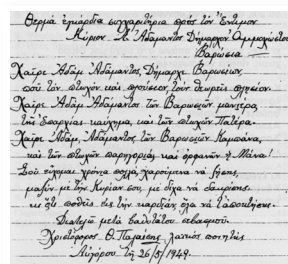 Θερμά ἐγκάρδια συγχαρητήρια πρός τόν Ἔντιμον
Κύριον Ἀ. Ἀδάμαντος Δήμαρχον Ἀμμοχώστου
Βαρώσια
Χαῖρε Ἀδάμ Ἀδάμαντος, Δήμαρχε Βαρωσίων,
πού τόν πτωχόν καί πλούσιον, τούς θωρεῖς πλησίον.
Χαῖρε Ἀδάμ Ἀδάμαντος τῶν Βαρωσιῶν
τῆς ἐπαρχίας καύχημα, καί τῶν πτωχῶν Πατέρα.
Χαῖρε Ἀδάμ, Ἀδάμαντος τῶν Βαρωσιῶν Καμπάνα,
καί τῶν πτωχῶν παρηγοριά, καί ὀρφανῶν ἡ Μάνα!
Σοῦ εὔχομαι χρόνια πολλά, χαρούμενα νά ζήσῃς,
μαζύν μέ τήν Κυρίαν σου, μέ δίχα νά
κι' ὅτι ποθεῖς εἰς τήν καρδιάν, ὅλα νά τ' ἀποκτήσῃς.
Διατελῶ μετά βαθυτάτου σεβασμοῦ.
Χριστόφορος Θ. Παλαίσης, λαϊκός ποιητής
Αὐγόρου τῇ 26/5/1949.